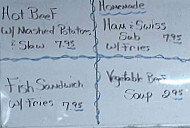 Hot Beef
w/ Mashed Potatoes
& Slaw 7.95
Homemade
Ham & Swiss
Sub 7.95
w/ Fries
Fish Sandwich
w/ Fries 7.95
Vegetable Beef
Soup 2.95